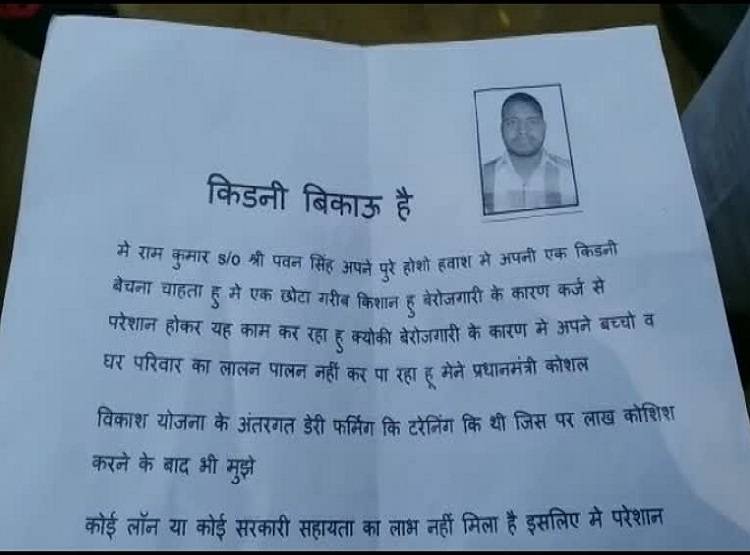 किडनी बिकाऊ है
मे राम कुमार s/o श्री पवन सिंह अपने पुरे होशो हवाश मे अपनी एक किडनी
बेचना चाहता हु मे एक छोटा गरीब किशान हु बेरोजगारी के कारण कर्ज से
परेशान होकर यह काम कर रहा हू क्योकी बेरोजगारी के कारण मे अपने बच्चो व
घर परिवार का लालन पालन नहीं कर पा रहा हू मेने प्रधानमंत्री कोशल
विकाश योजना के अंतरगत डेरी फर्मिग कि टरेनिंग कि थी जिस पर लाख कोशिश
करने के बाद भी मुझे
कोई लॉन या कोई सरकारी सहायता का लाभ नहीं मिला है इसलिए मे परेशान